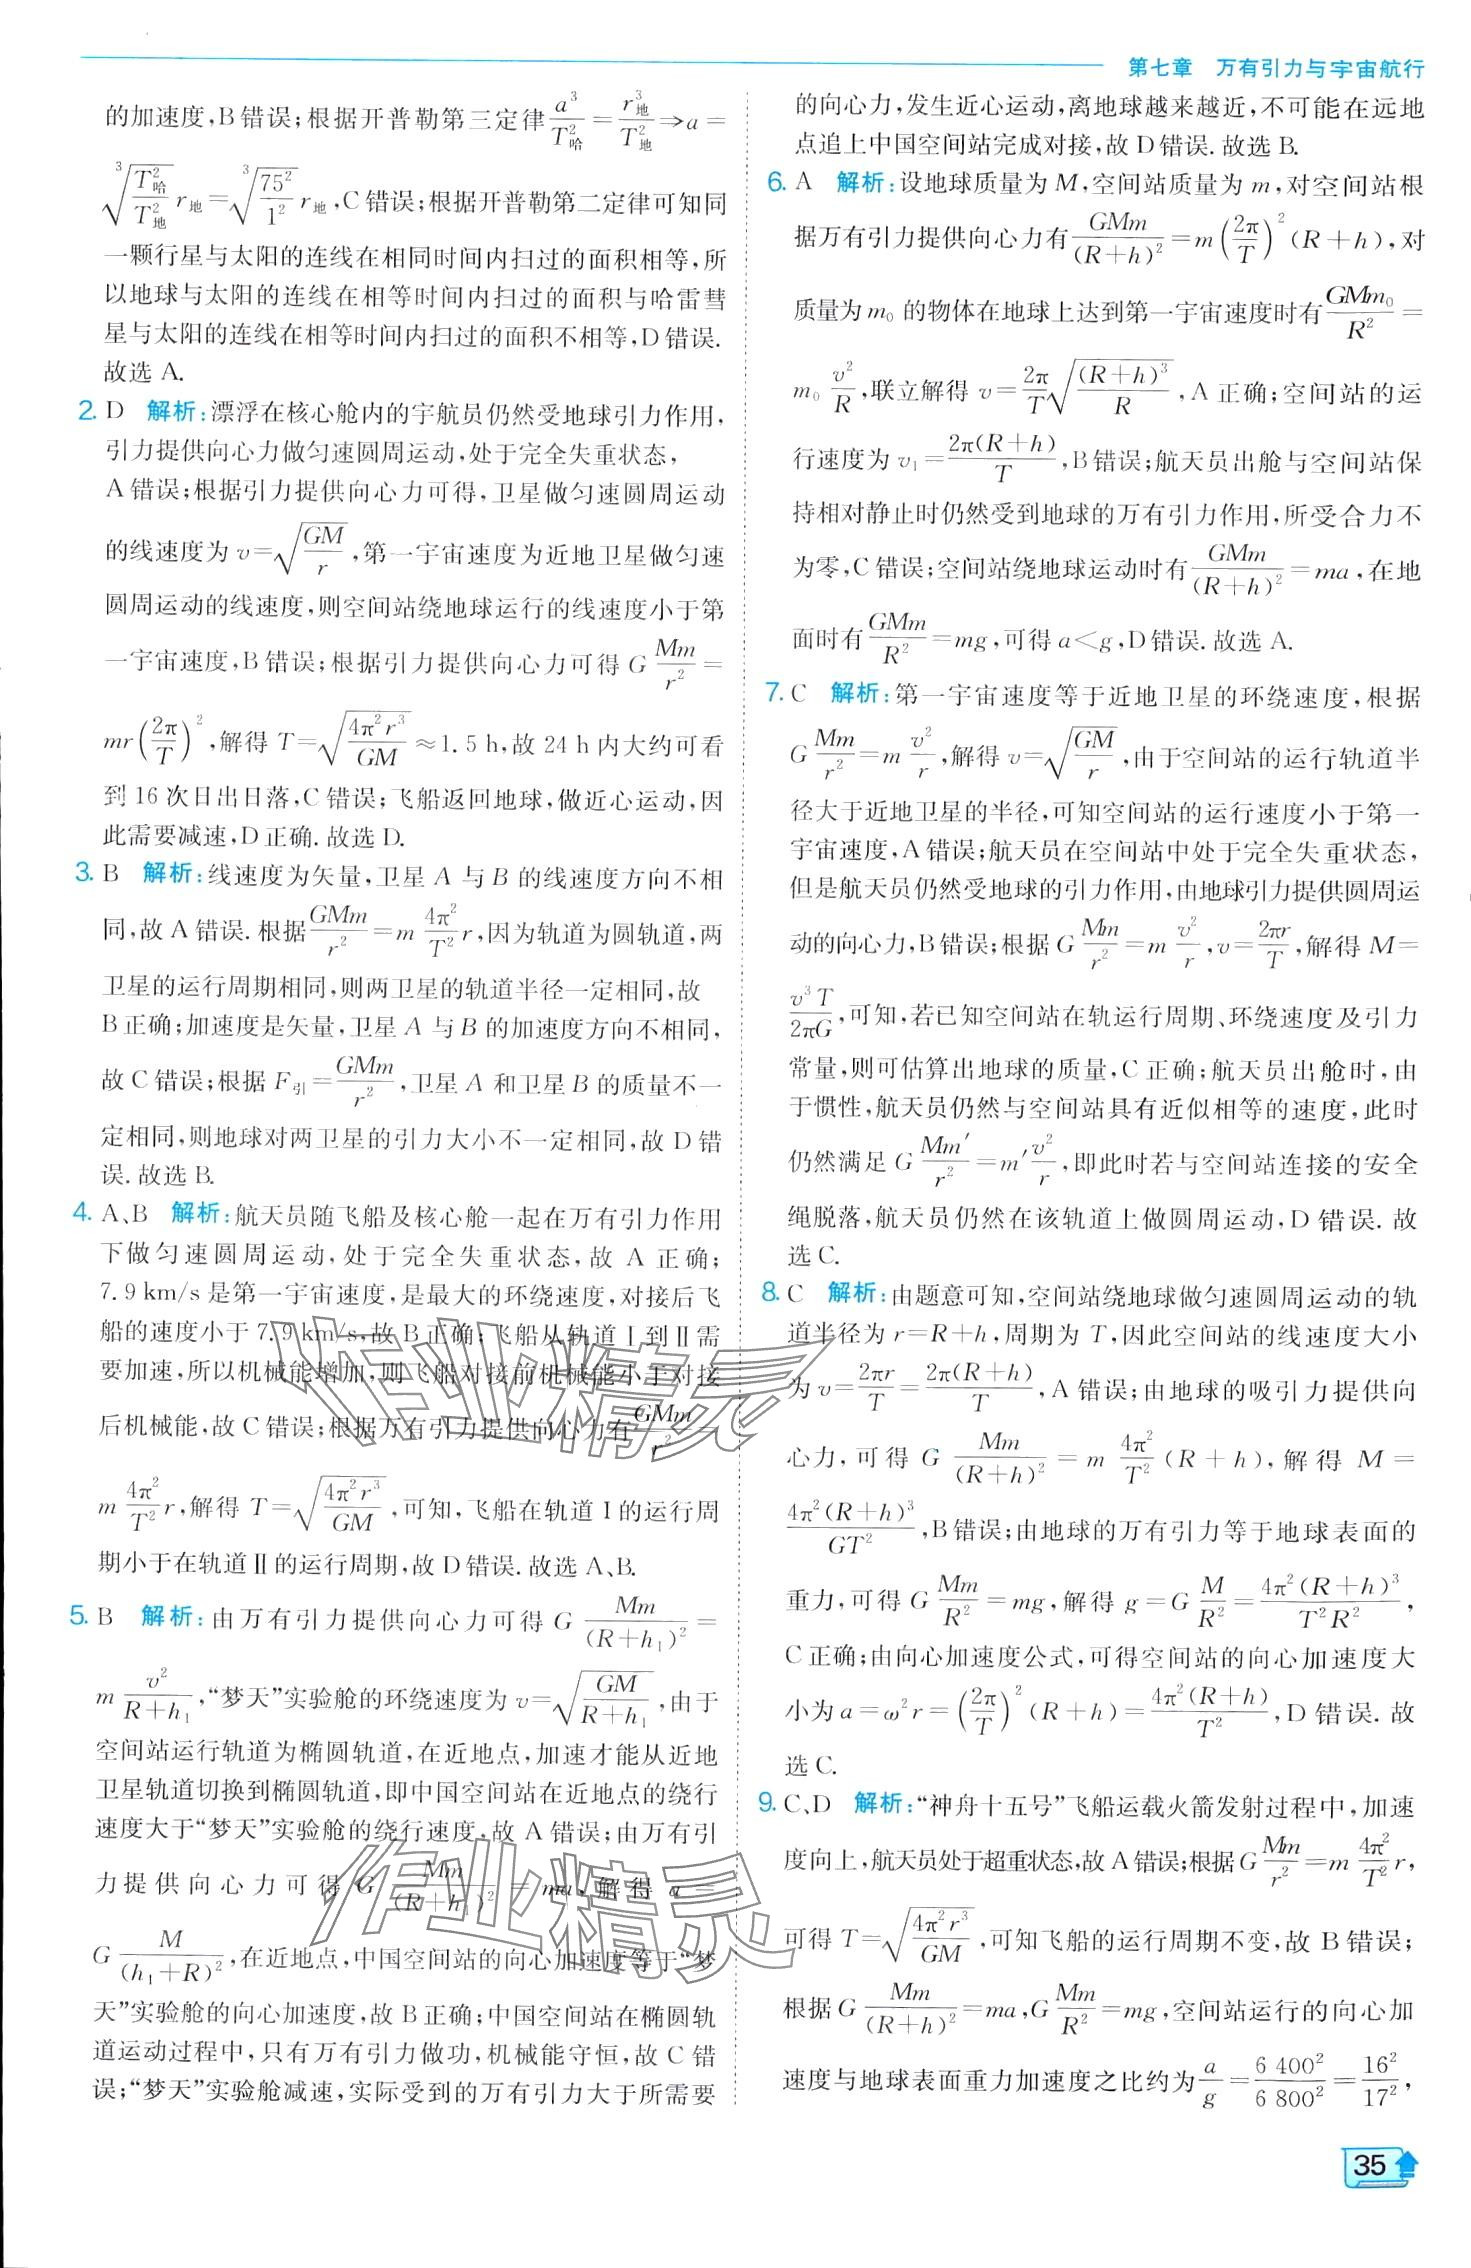 第七章 万有引力与宇宙航行
的加速度,B错误;根据开普勒第三定律a³/T²哈=r³地/T²地⇒a=
³√(T²哈/T²地) r地=³√(75²/1²) r地,C错误;根据开普勒第二定律可知同
一颗行星与太阳的连线在相同时间内扫过的面积相等,所
以地球与太阳的连线在相等时间内扫过的面积与哈雷彗
星与太阳的连线在相等时间内扫过的面积不相等,D错误.
故选A.
2. D 解析:漂浮在核心舱内的宇航员仍然受地球引力作用,
引力提供向心力做匀速圆周运动,处于完全失重状态,
A错误;根据引力提供向心力可得,卫星做匀速圆周运动
的线速度为v=√(GM/r),第一宇宙速度为近地卫星做匀速
圆周运动的线速度,则空间站绕地球运行的线速度小于第
一宇宙速度,B错误;根据引力提供向心力可得G Mm/r²=
mr(2π/T)²,解得T=√(4π²r³/GM)≈1.5 h,故24 h内大约可看
到16次日出日落,C错误;飞船返回地球,做近心运动,因
此需要减速,D正确.故选D.
3. B 解析:线速度为矢量,卫星A与B的线速度方向不相
同,故A错误.根据GMm/r²=m 4π²/T² r,因为轨道为圆轨道,两
卫星的运行周期相同,则两卫星的轨道半径一定相同,故
B正确;加速度是矢量,卫星A与B的加速度方向不相同,
故C错误;根据F引=GMm/r²,卫星A和卫星B的质量不一
定相同,则地球对两卫星的引力大小不一定相同,故D错
误.故选B.
4. A、B 解析:航天员随飞船及核心舱一起在万有引力作用
下做匀速圆周运动,处于完全失重状态,故A正确;
7.9 km/s是第一宇宙速度,是最大的环绕速度,对接后飞
船的速度小于7.9 km/s,故B正确;飞船从轨道Ⅰ到Ⅱ需
要加速,所以机械能增加,则飞船对接前机械能小于对接
后机械能,故C错误;根据万有引力提供向心力有GMm/r²=
m 4π²/T² r,解得T=√(4π²r³/GM),可知,飞船在轨道Ⅰ的运行周
期小于在轨道Ⅱ的运行周期,故D错误.故选A、B.
5. B 解析:由万有引力提供向心力可得G Mm/(R+h₁)²=
m v²/(R+h₁),“梦天”实验舱的环绕速度为v=√(GM/(R+h₁)),由于
空间站运行轨道为椭圆轨道,在近地点,加速才能从近地
卫星轨道切换到椭圆轨道,即中国空间站在近地点的绕行
速度大于“梦天”实验舱的绕行速度,故A错误;由万有引
力提供向心力可得G Mm/(R+h₁)²=ma,解得a=
G M/(h₁+R)²,在近地点,中国空间站的向心加速度等于“梦
天”实验舱的向心加速度,故B正确;中国空间站在椭圆轨
道运动过程中,只有万有引力做功,机械能守恒,故C错
误;“梦天”实验舱减速,实际受到的万有引力大于所需要
的向心力,发生近心运动,离地球越来越近,不可能在远地
点追上中国空间站完成对接,故D错误.故选B.
6. A 解析:设地球质量为M,空间站质量为m,对空间站根
据万有引力提供向心力有GMm/(R+h)²=m(2π/T)²(R+h),对
质量为m₀的物体在地球上达到第一宇宙速度时有GMm₀/R²=
m₀ v²/R,联立解得v=2π/T √((R+h)³/R),A正确;空间站的运
行速度为v₁=2π(R+h)/T,B错误;航天员出舱与空间站保
持相对静止时仍然受到地球的万有引力作用,所受合力不
为零,C错误;空间站绕地球运动时有GMm/(R+h)²=ma,在地
面时有GMm/R²=mg,可得a<g,D错误.故选A.
7. C 解析:第一宇宙速度等于近地卫星的环绕速度,根据
G Mm/r²=m v²/r,解得v=√(GM/r),由于空间站的运行轨道半
径大于近地卫星的半径,可知空间站的运行速度小于第一
宇宙速度,A错误;航天员在空间站中处于完全失重状态,
但是航天员仍然受地球的引力作用,由地球引力提供圆周运
动的向心力,B错误;根据G Mm/r²=m v²/r,v=2πr/T,解得M=
v³T/2πG,可知,若已知空间站在轨运行周期、环绕速度及引力
常量,则可估算出地球的质量,C正确;航天员出舱时,由
于惯性,航天员仍然与空间站具有近似相等的速度,此时
仍然满足G Mm′/r²=m′v²/r,即此时若与空间站连接的安全
绳脱落,航天员仍然在该轨道上做圆周运动,D错误.故
选C.
8. C 解析:由题意可知,空间站绕地球做匀速圆周运动的轨
道半径为r=R+h,周期为T,因此空间站的线速度大小
为v=2πr/T=2π(R+h)/T,A错误;由地球的吸引力提供向
心力,可得G Mm/(R+h)²=m 4π²/T²(R+h),解得M=
4π²(R+h)³/GT²,B错误;由地球的万有引力等于地球表面的
重力,可得G Mm/R²=mg,解得g=G M/R²=4π²(R+h)³/T²R²,
C正确;由向心加速度公式,可得空间站的向心加速度大
小为a=ω²r=(2π/T)²(R+h)=4π²(R+h)/T²,D错误.故
选C.
9. C、D 解析:“神舟十五号”飞船运载火箭发射过程中,加速
度向上,航天员处于超重状态,故A错误;根据G Mm/r²=m 4π²/T² r,
可得T=√(4π²r³/GM),可知飞船的运行周期不变,故B错误;
根据G Mm/(R+h)²=ma,G Mm/R²=mg,空间站运行的向心加
速度与地球表面重力加速度之比约为a/g=6 400²/6 800²=16²/17²,
35
作业精灵
作业精灵